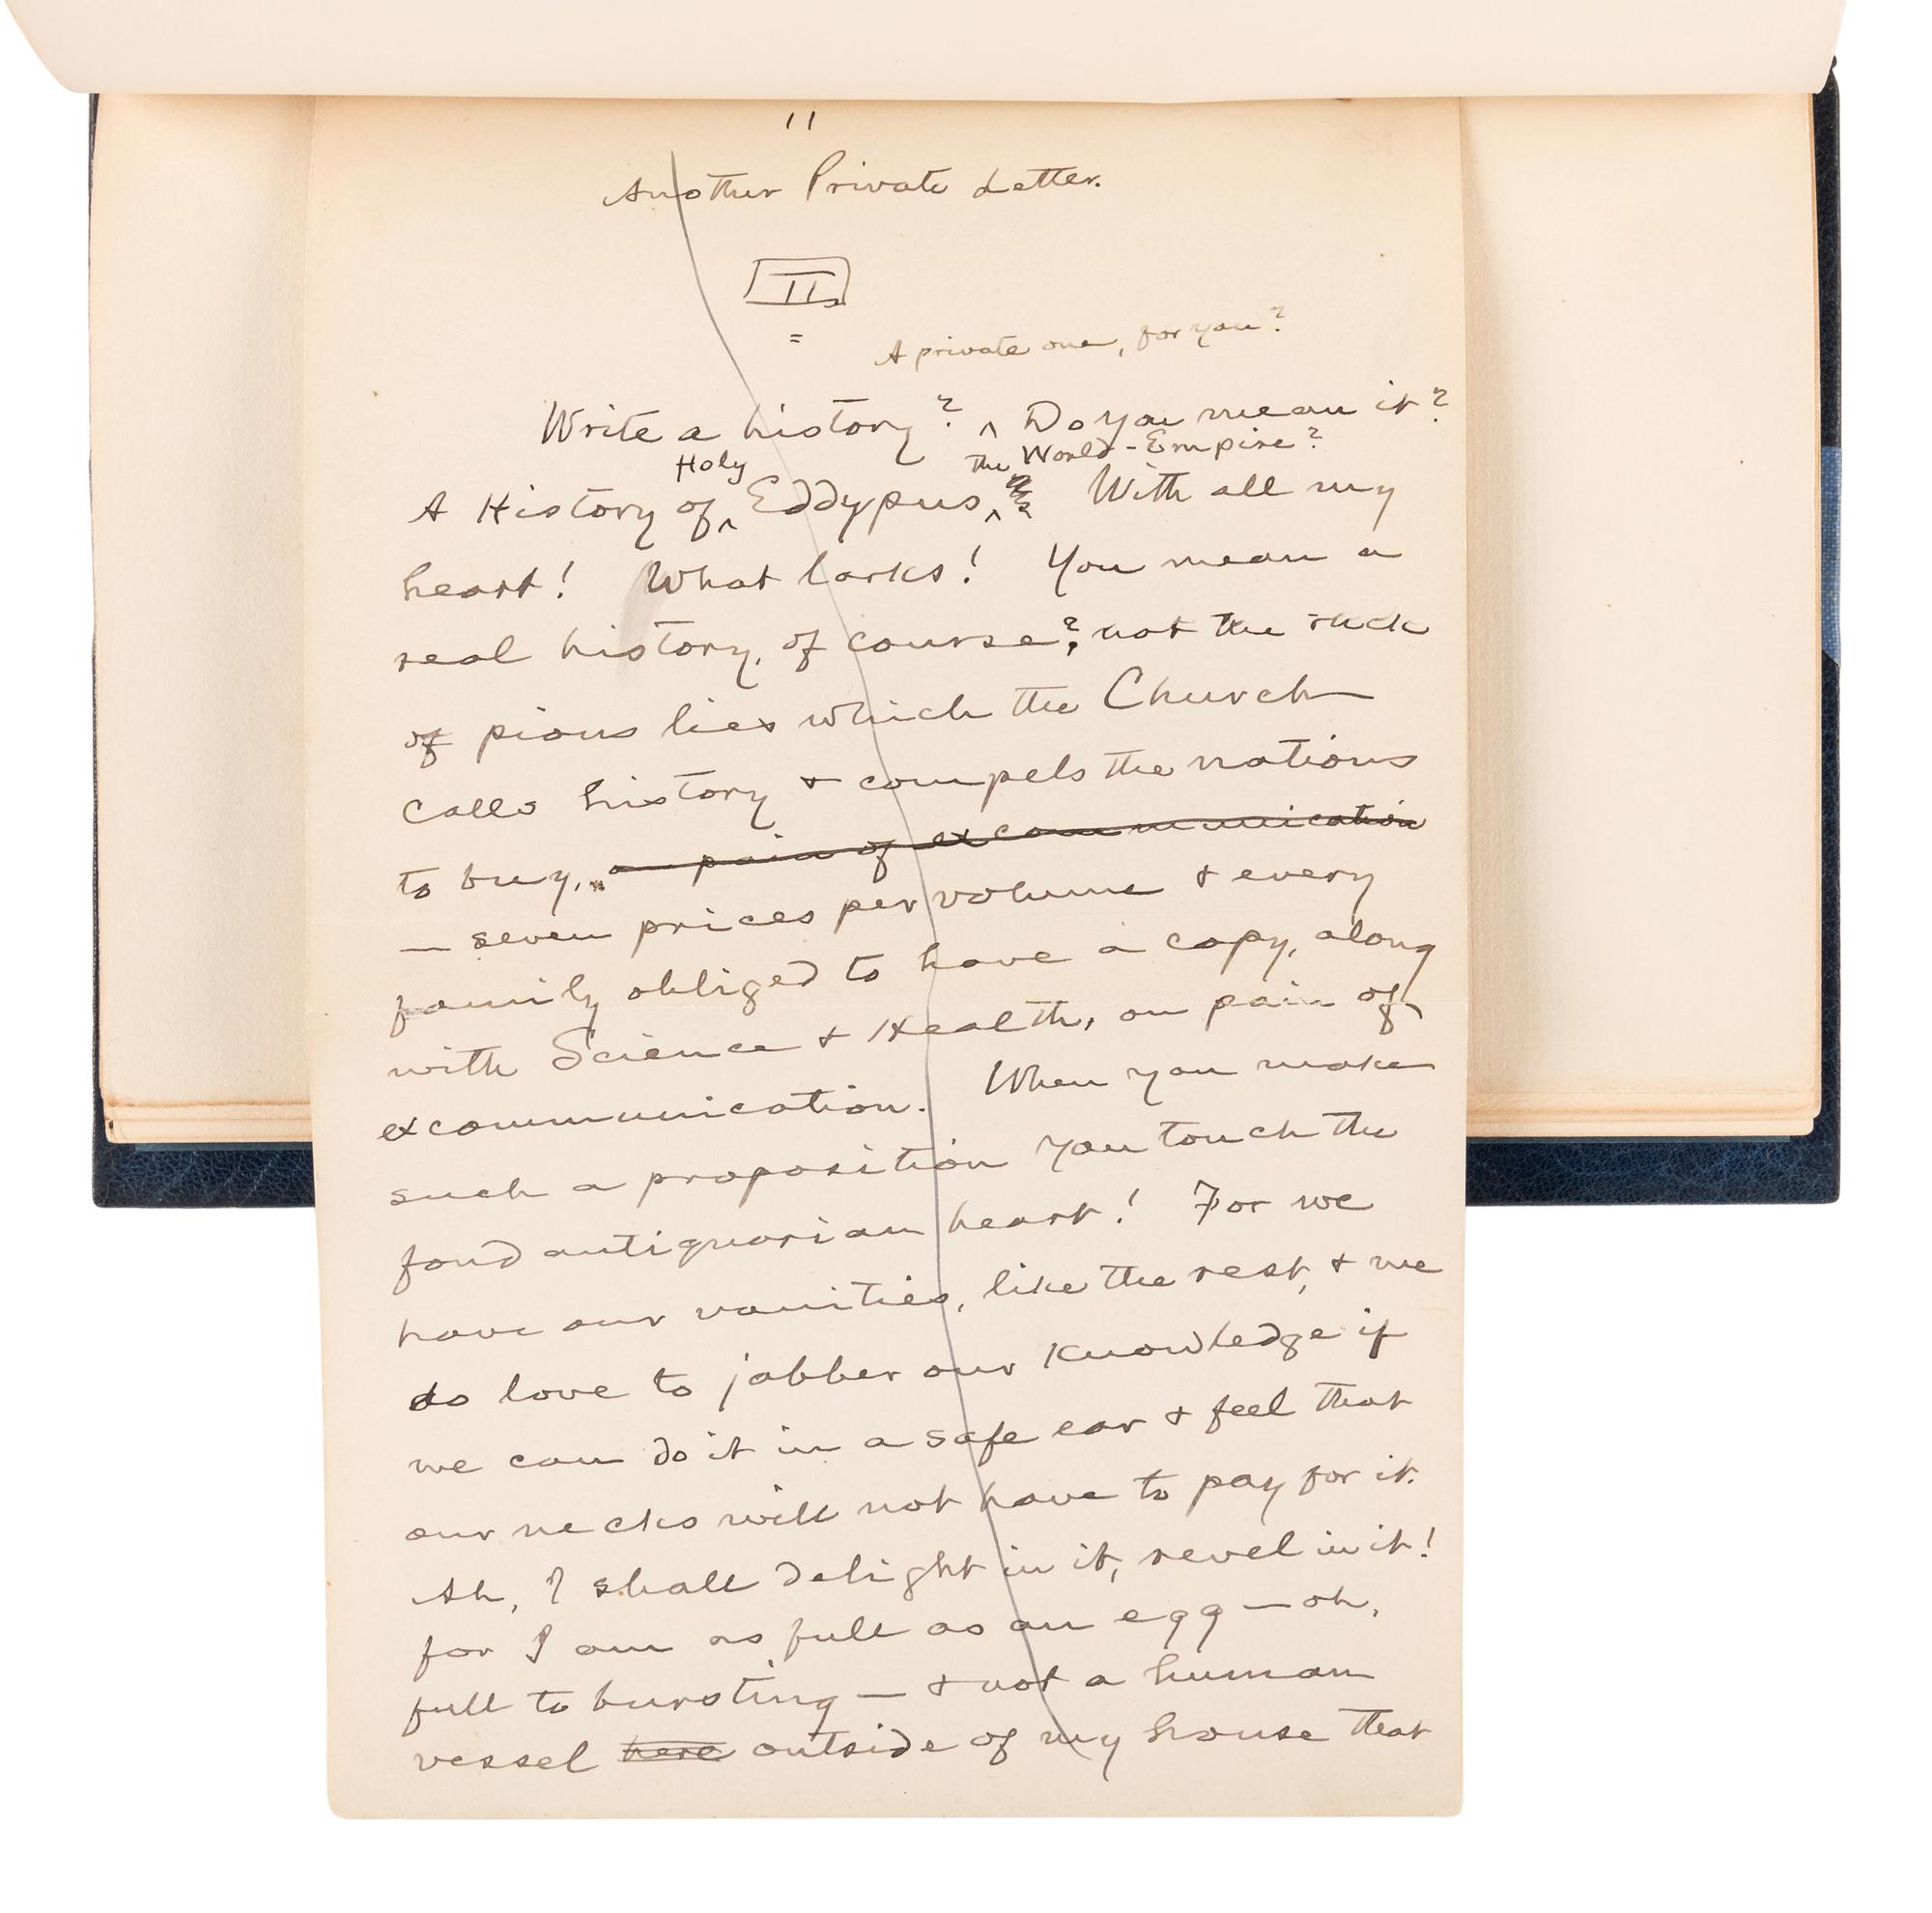 11
Another Private Letter.
II.
A private one, for you?
Write a history? ^ Do you mean it?
Holy the World-Empire?
A History of ^ Eddypus, ^ With all my
heart! What larks! You mean a
real history, of course?; not the ruck
of pious lies which the Church
calls history & compels the nations
to buy, on pain of excommunication
— seven prices per volume & every
family obliged to have a copy, along
with Science & Health, on pain of
excommunication. When you make
such a proposition you touch the
fond antiquarian heart! For we
have our vanities, like the rest, & we
do love to jabber our knowledge if
we can do it in a safe ear & feel that
our necks will not have to pay for it.
Ah, I shall delight in it, revel in it!
for I am as full as an egg — oh,
full to bursting — & not a human
vessel here outside of my house that